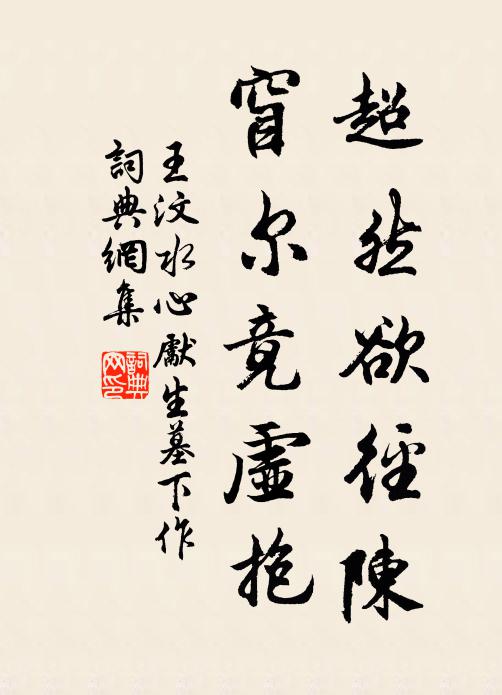 超然欲徑陳
窅尔竟虛抱
王汶水心獻生墓下作
詞典網集
詞典
网印